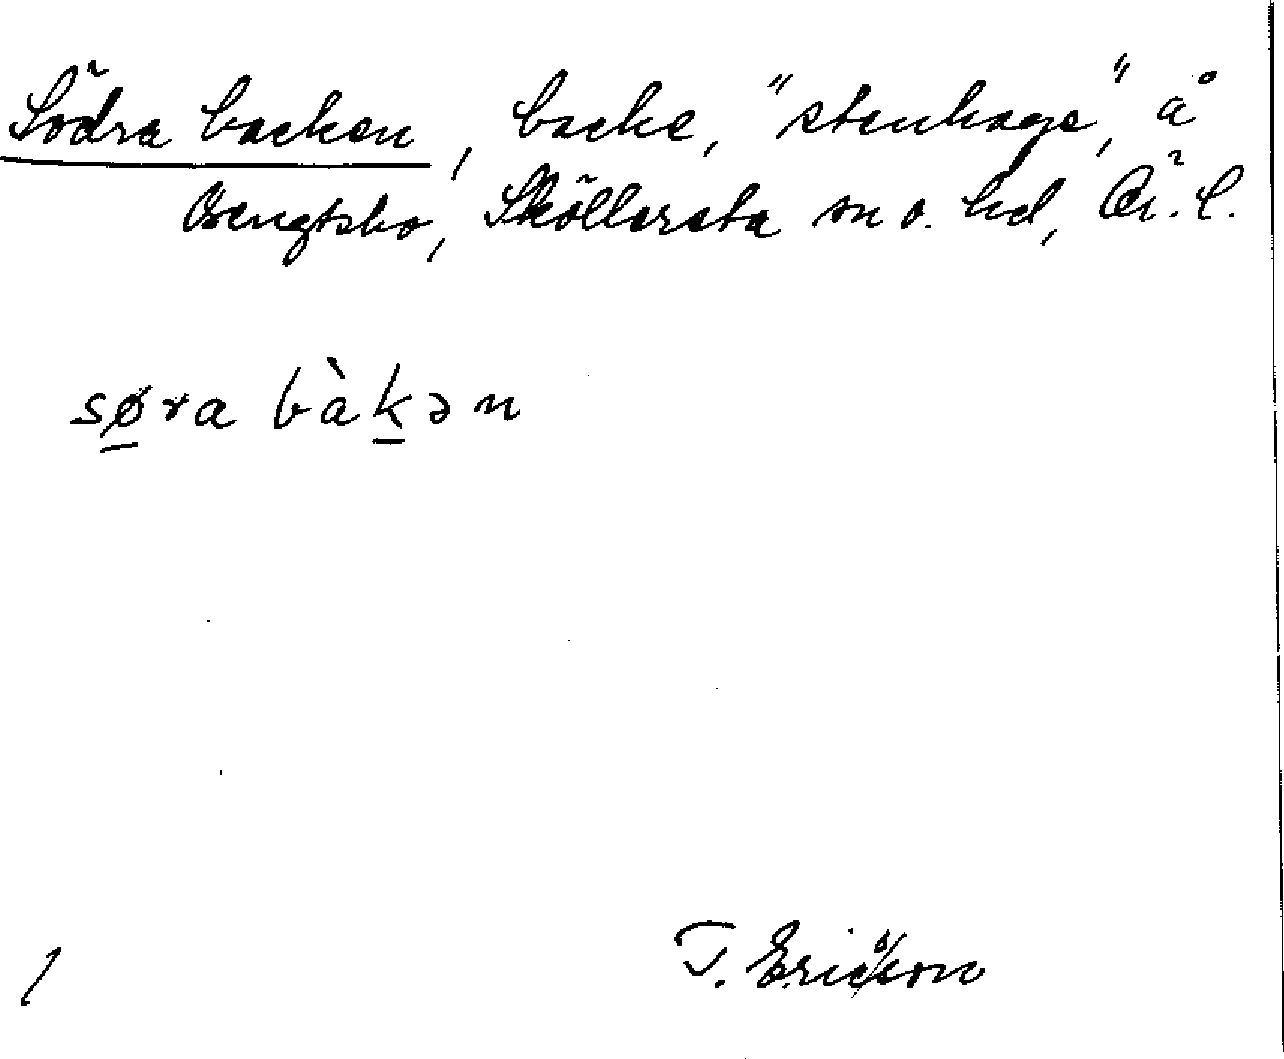 Södra backen, backe, "stenhage", å
Bengtsbo, Sköllersta sn o. hd, Ör. l.
søra bàkən
T. Ericson